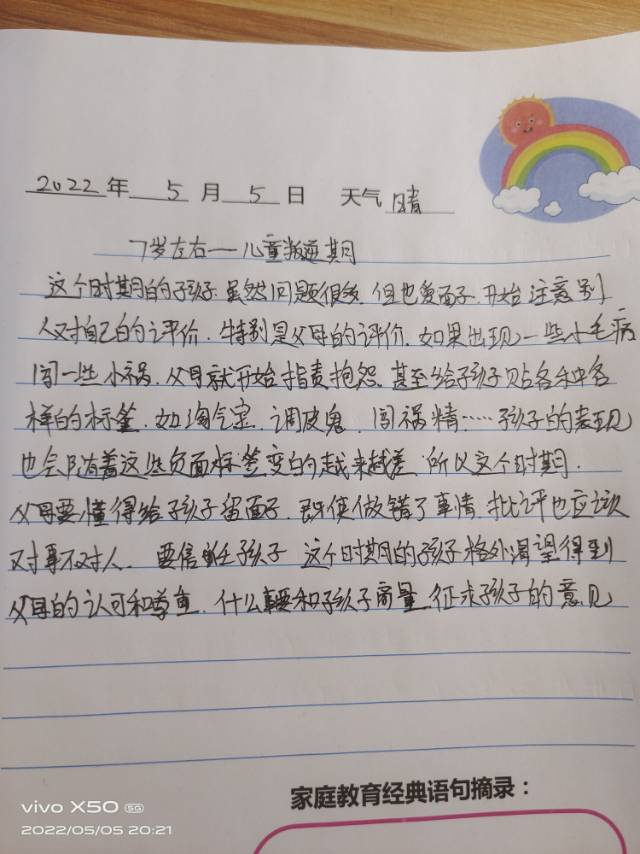 2022年 5 月 5 日 天气 晴
7岁左右——儿童叛逆期
这个时期的孩子.虽然问题很多.但也爱面子.开始注意别
人对自己的评价.特别是父母的评价.如果出现一些小毛病
闯一些小祸.父母就开始指责抱怨.甚至给孩子贴各种各
样的标签.如淘气宝.调皮鬼.闯祸精……孩子的表现
也会随着这些负面标签变的越来越差.所以这个时期.
父母要懂得给孩子留面子.既使做错了事情.批评也应该
对事不对人.要信任孩子 这个时期的孩子格外渴望得到
父母的认可和尊重.什么事要和孩子商量.征求孩子的意见
家庭教育经典语句摘录：
vivo X50 5G
2022/05/05 20:21